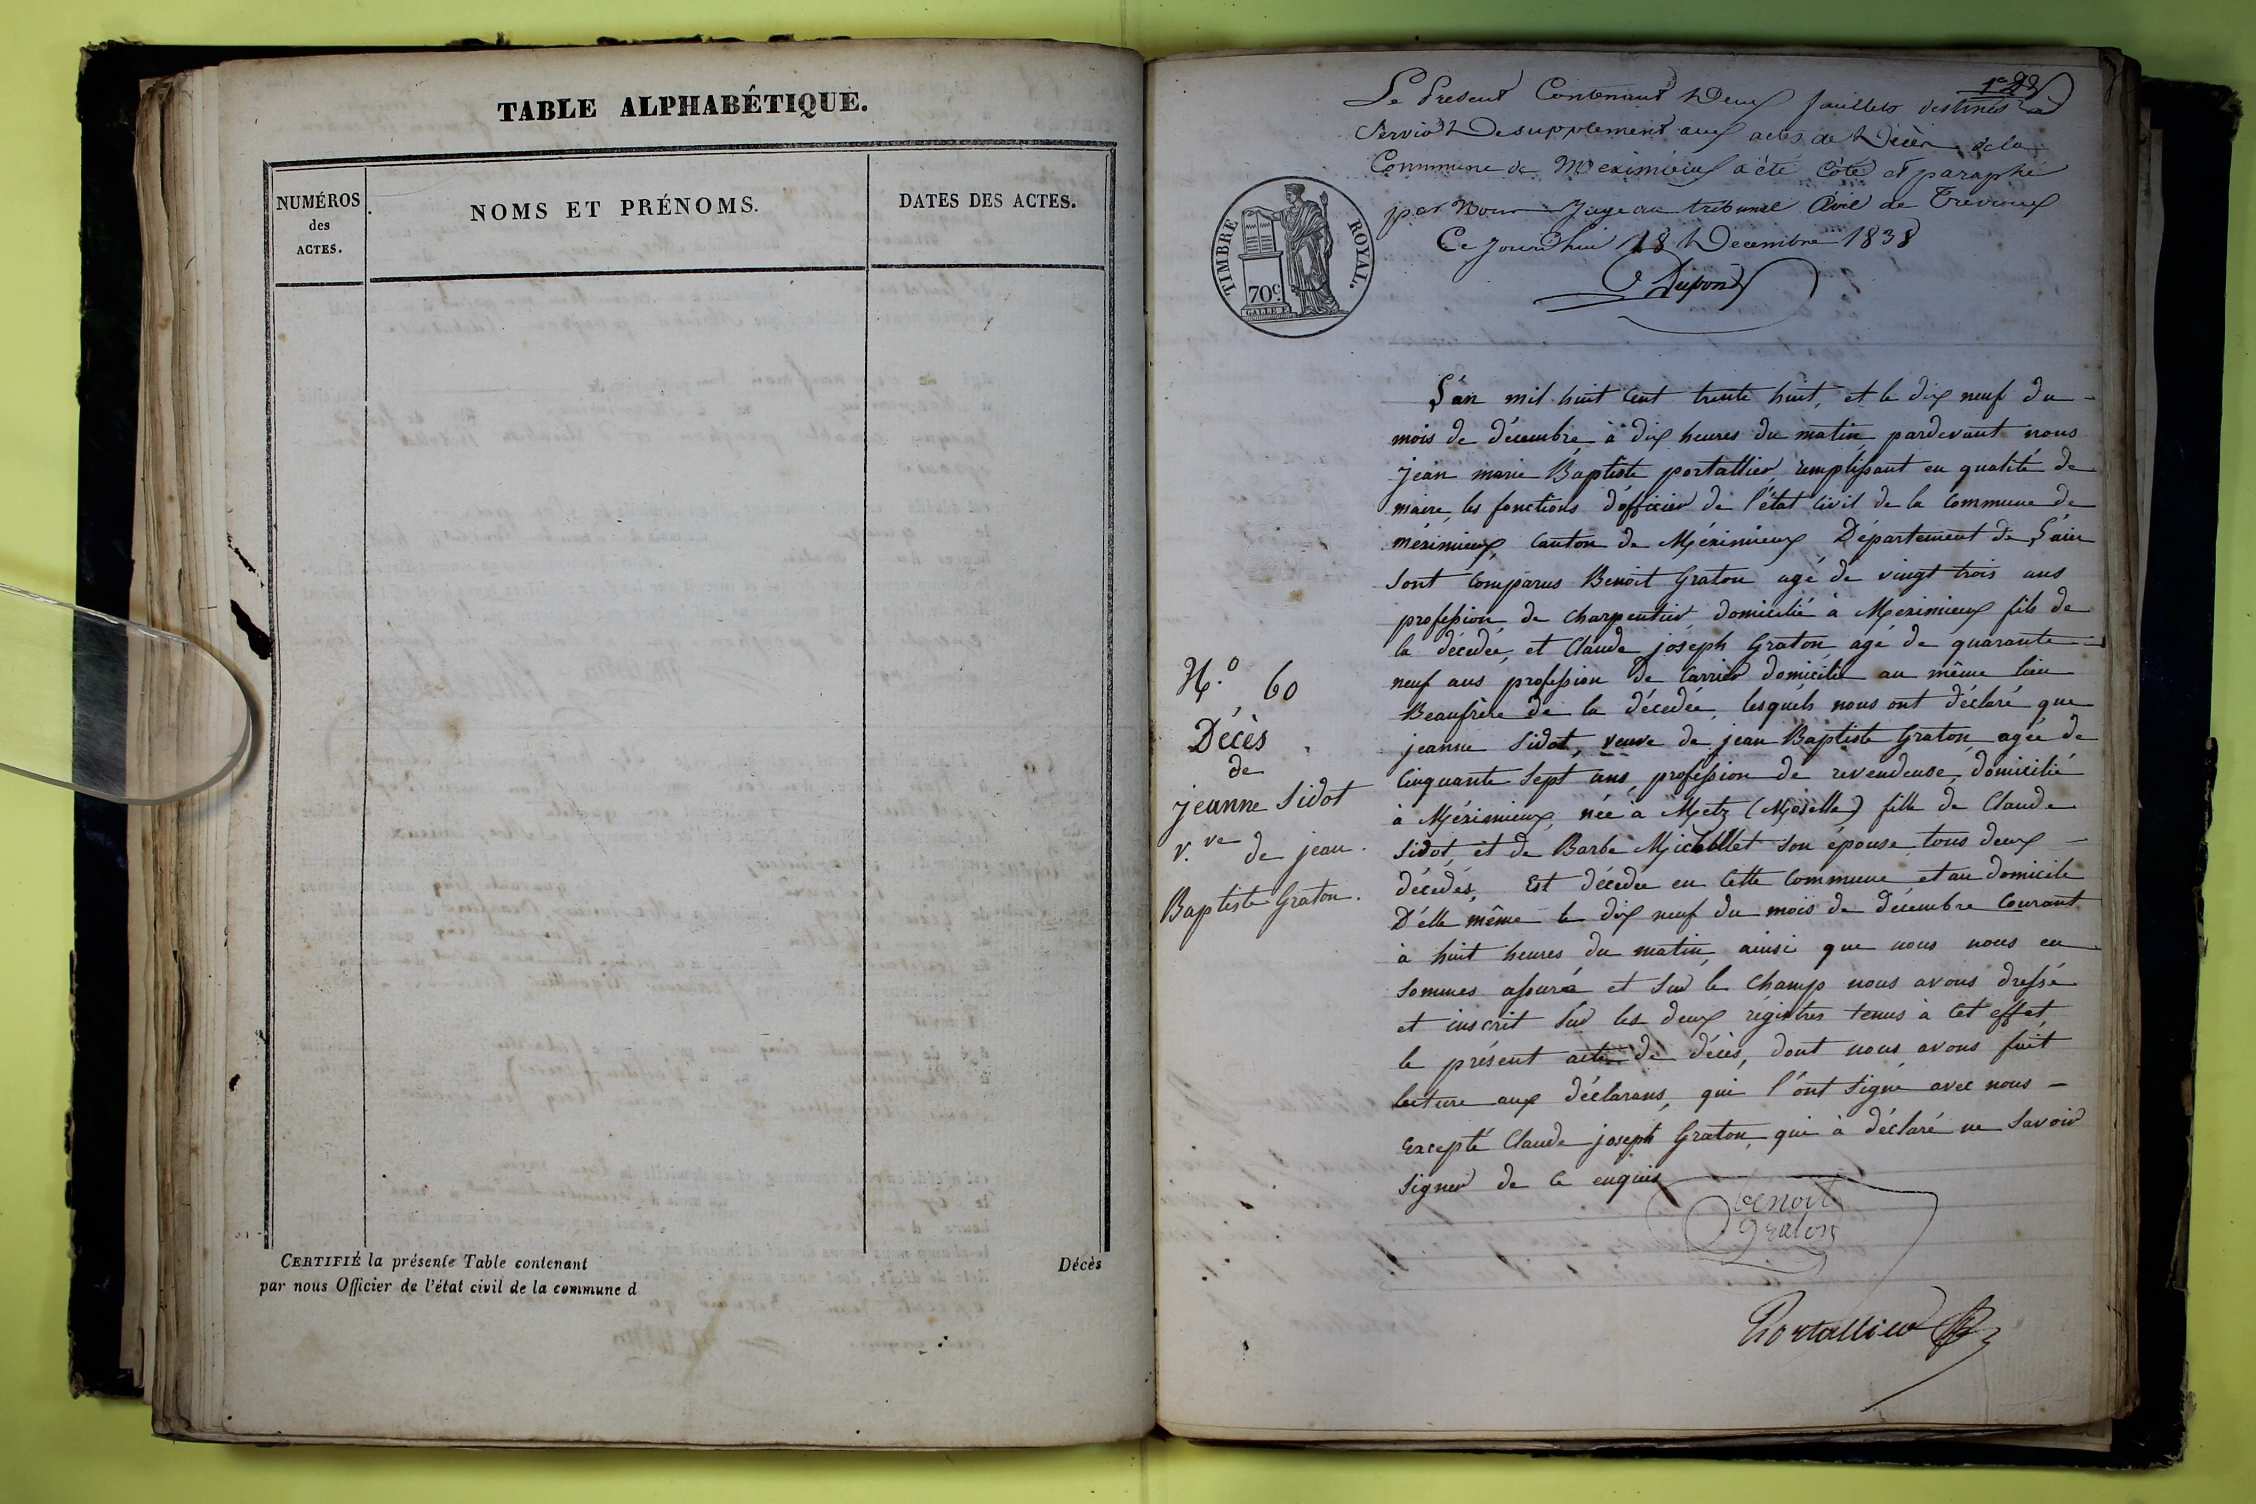 TABLE ALPHABÉTIQUE.
NUMÉROS
des
ACTES.
NOMS ET PRÉNOMS.
DATES DES ACTES.
CERTIFIÉ la présente Table contenant
Décès
par nous Officier de l'état civil de la commune d
Le Present Contenant Deux feuillets destinés a
Servir De supplement aux actes de Décès de la
Commune de Meximieux a été Coté et paraphé
par Nous Juge au tribunal Civil de Trevoux
Ce Jourd'hui 18 Decembre 1838
Dupont
TIMBRE ROYAL.
70c.
L'an mil huit Cent trente huit, et le dix neuf du
mois de décembre à dix heures du matin pardevant nous
jean marie Baptiste portallier remplissant en qualité de
maire, les fonctions d'officier de l'état civil de la Commune de
méximieux, Canton de Méximieux Département de L'ain
Sont Comparus Benoit Graton agé de vingt trois ans
profession de Charpentier domicilié à Meximieux fils de
la décédée, et Claude joseph Graton agé de quarante
neuf ans profession de Carrier domicilié au même lieu
Beaufrère de la décédée, lesquels nous ont déclaré que
jeanne Sidot, veuve de jean Baptiste Graton agée de
Cinquante Sept ans, profession de revendeuse, domicilié
à Méximieux, née à Metz (Moselle) fille de Claude
Sidot, et de Barbe son épouse tous deux
décédés, Est décédée en Cette Commune et au domicile
D'elle même le dix neuf du mois de décembre Courant
à huit heures du matin, ainsi que nous nous en
Sommes assuré et Sur le Champ nous avons dressé
et inscrit Sur les deux régistres tenus à Cet effet,
le présent acte de décès, dont nous avons fait
lecture aux déclarans, qui l'ont Signé avec nous
Excepté Claude joseph Graton qui à déclaré ne Savoir
Signer de Ce enquis
N.o 60
Décès
de
jeanne Sidot
v.ve de jean
Baptiste Graton.
Benoit
Graton
Portallier